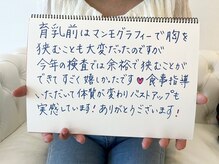 育乳前はマンモグラフィーで胸を
挟むことも大変だったのですが
今年の検査では余裕で挟むことが
できてすごく嬉しかったです♥食事指導
いただいて体質が変わりバストアップも
実感しています！ありがとうございます！